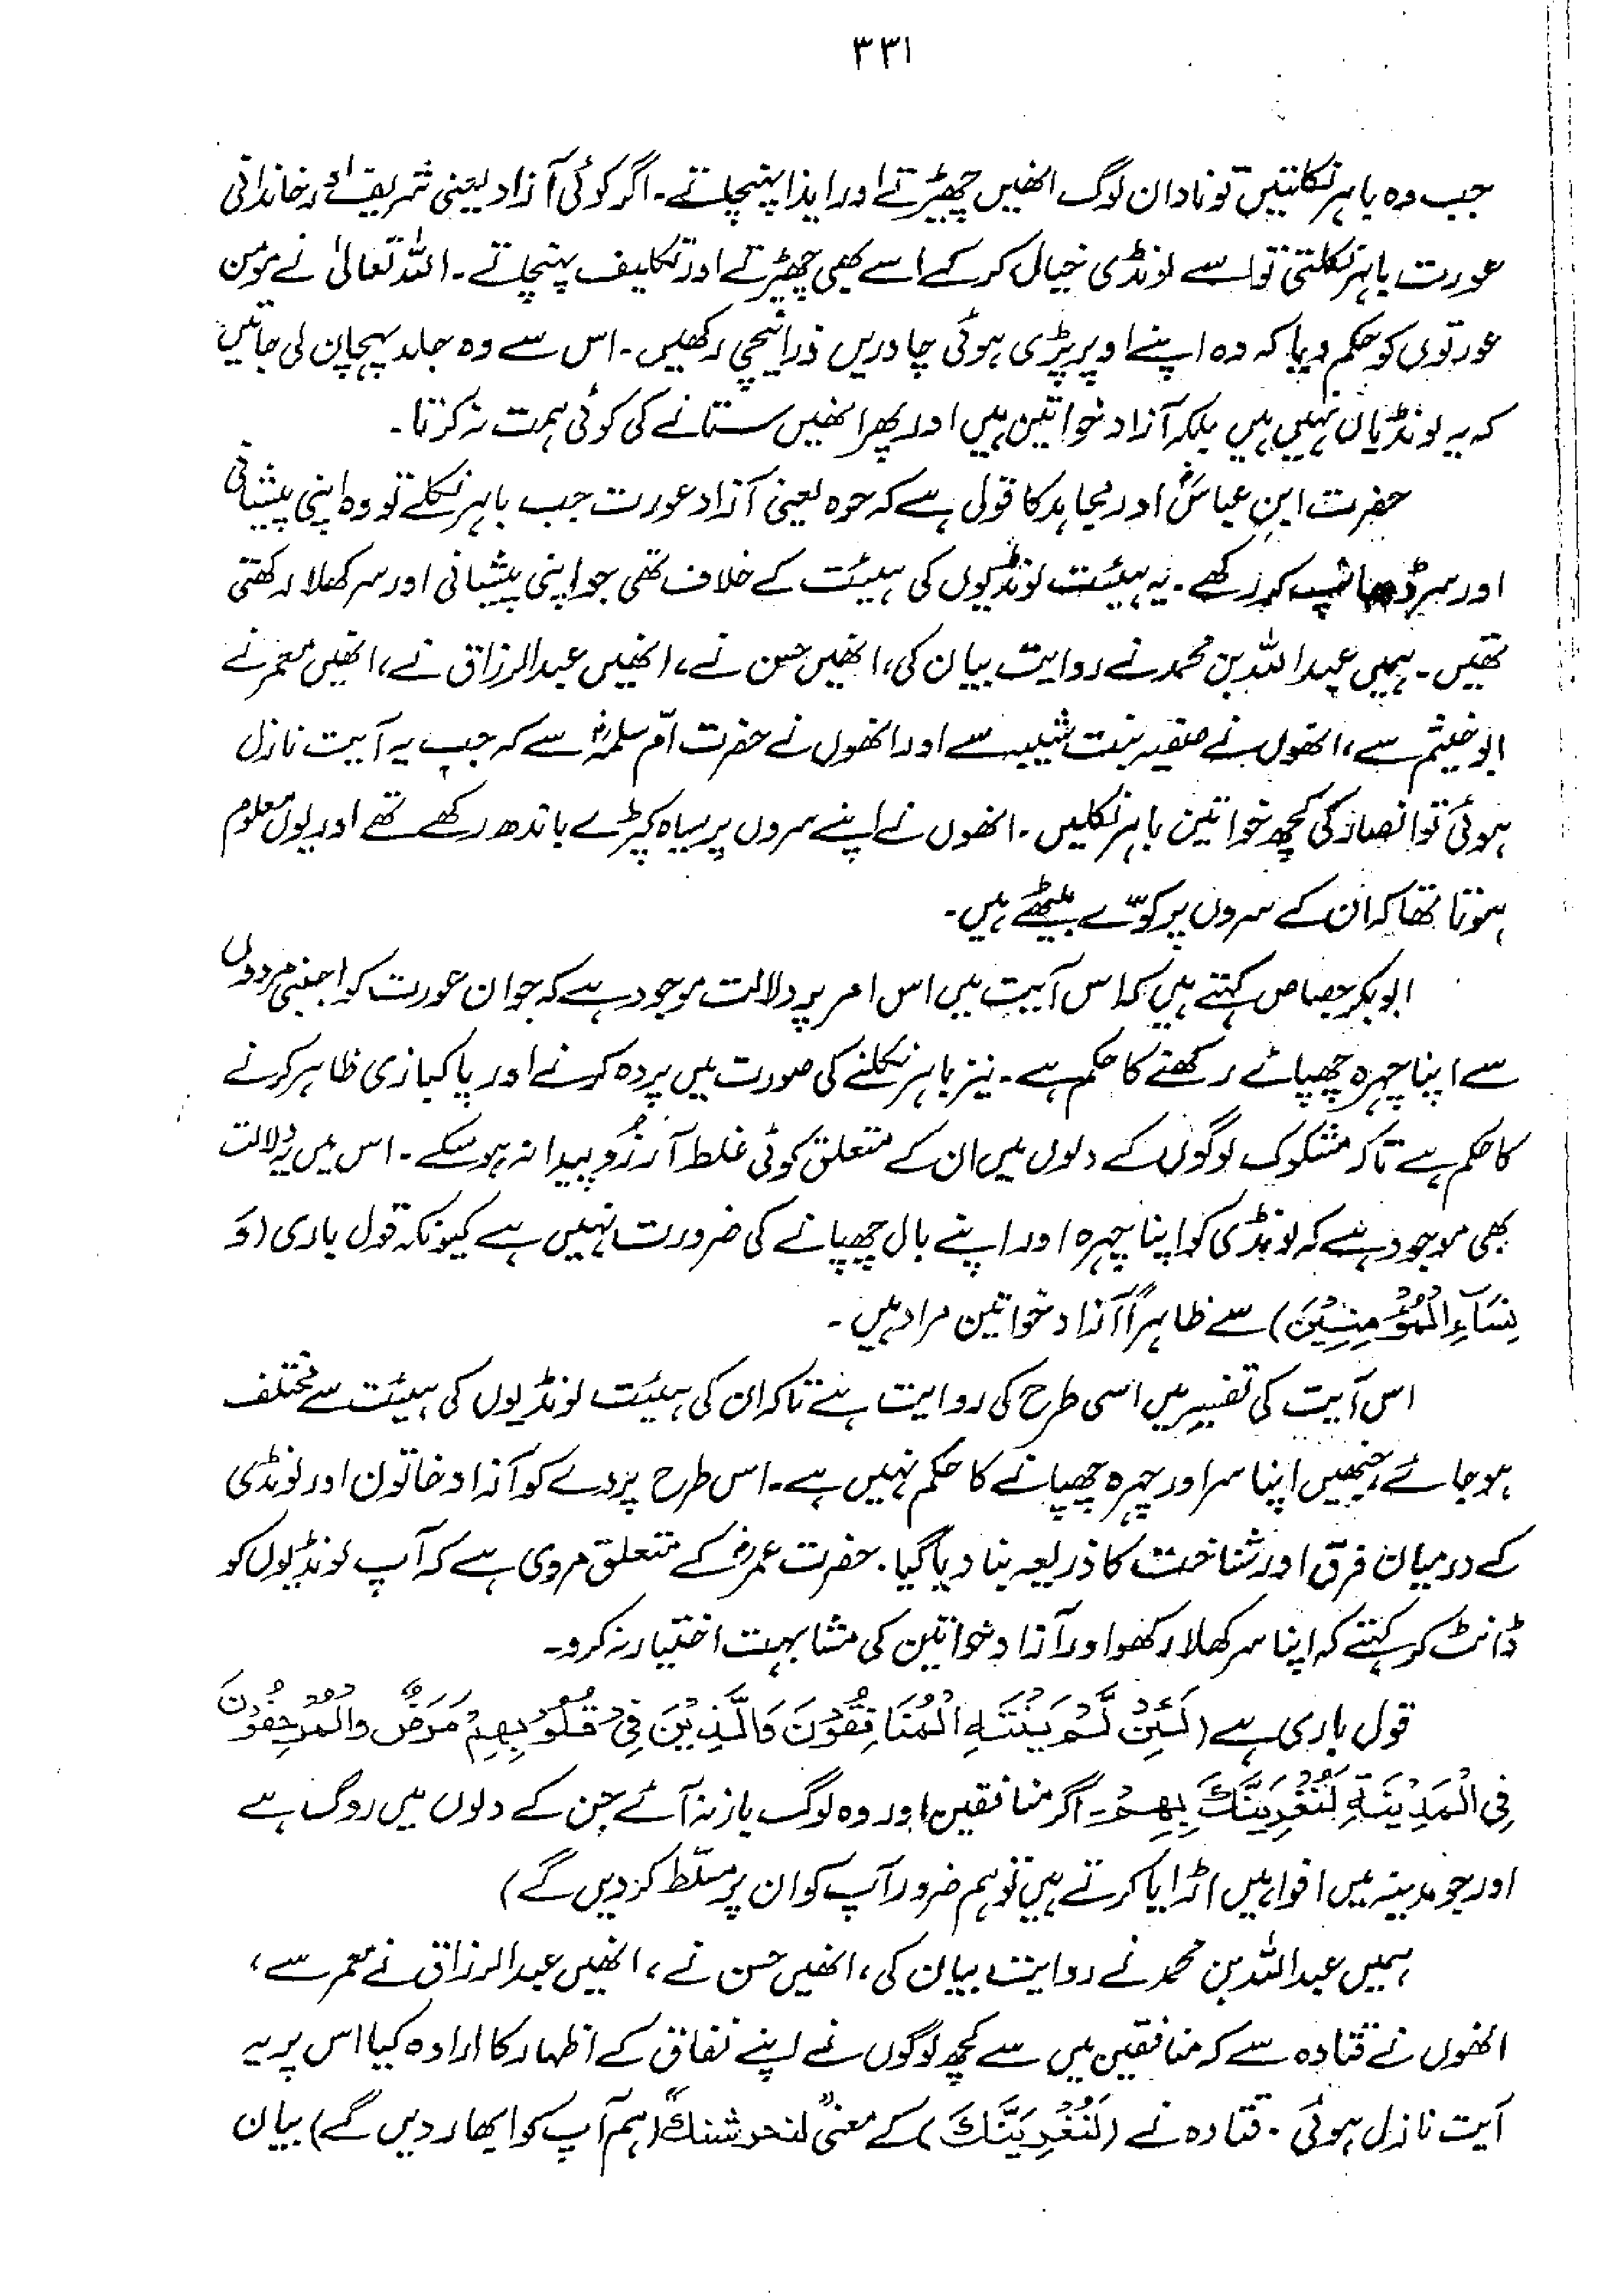 ۳۳۱
جب وہ باہر نکلتیں تو نادان لوگ انھیں چھیڑتے اور ایذا پہنچاتے۔ اگر کوئی آزاد یعنی شریف اور خاندانی
عورت باہر نکلتی تو اسے لونڈی خیال کر کے اسے بھی چھیڑتے اور تکلیف پہنچاتے۔ اللہ تعالیٰ نے مومن
عورتوں کو حکم دیا کہ وہ اپنے اوپر پڑی ہوئی چادریں ذرا نیچی رکھیں۔ اس سے وہ جلد پہچان لی جائیں
کہ یہ لونڈیاں نہیں ہیں بلکہ آزاد خواتین ہیں اور پھر انھیں ستانے کی کوئی ہمت نہ کرتا۔
حضرت ابن عباسؓ اور مجاہد کا قول ہے کہ حرہ یعنی آزاد عورت جب باہر نکلے تو وہ اپنی پیشانی
اور سر ڈھانپ کر رکھے۔ یہ ہیئت لونڈیوں کی ہیئت کے خلاف تھی جو اپنی پیشانی اور سر کھلا رکھتی
تھیں۔ ہمیں عبداللہ بن محمد نے روایت بیان کی، انھیں حسن نے، انھیں عبدالرزاق نے، انھیں معمر نے
ابوخیثم سے، انھوں نے صفیہ بنت شیبہ سے اور انھوں نے حضرت امّ سلمہؓ سے کہ جب یہ آیت نازل
ہوئی تو انصار کی کچھ خواتین باہر نکلیں۔ انھوں نے اپنے سروں پر سیاہ کپڑے باندھ رکھے تھے اور یوں معلوم
ہوتا تھا کہ ان کے سروں پر کوّے بیٹھے ہیں۔
ابوبکر جصاص کہتے ہیں کہ اس آیت میں اس امر پر دلالت موجود ہے کہ جوان عورت کو اجنبی مردوں
سے اپنا چہرہ چھپائے رکھنے کا حکم ہے۔ نیز باہر نکلنے کی صورت میں پردہ کرنے اور پاکبازی ظاہر کرنے
کا حکم ہے تاکہ مشکوک لوگوں کے دلوں میں ان کے متعلق کوئی غلط آرزو پیدا نہ ہو سکے۔ اس میں یہ دلالت
بھی موجود ہے کہ لونڈی کو اپنا چہرہ اور اپنے بال چھپانے کی ضرورت نہیں ہے کیونکہ قول باری (وَ
نِسَآءِ الْمُؤْمِنِیْنَ) سے ظاہراً آزاد خواتین مراد ہیں۔
اس آیت کی تفسیر میں اسی طرح کی روایت ہے تاکہ ان کی ہیئت لونڈیوں کی ہیئت سے مختلف
ہو جائے جنھیں اپنا سر اور چہرہ چھپانے کا حکم نہیں ہے۔ اس طرح پردے کو آزاد خاتون اور لونڈی
کے درمیان فرق اور شناخت کا ذریعہ بنا دیا گیا۔ حضرت عمرؓ کے متعلق مروی ہے کہ آپ لونڈیوں کو
ڈانٹ کر کہتے کہ اپنا سر کھلا رکھو اور آزاد خواتین کی مشابہت اختیار نہ کرو۔
قول باری ہے (لَئِنْ لَّمْ یَنْتَهِ الْمُنَافِقُوْنَ وَالَّذِیْنَ فِیْ قُلُوْبِهِمْ مَرَضٌ وَالْمُرْجِفُوْنَ
فِی الْمَدِیْنَةِ لَنُغْرِیَنَّكَ بِهِمْ۔ اگر منافقین اور وہ لوگ باز نہ آئے جن کے دلوں میں روگ ہے
اور جو مدینہ میں افواہیں اڑایا کرتے ہیں تو ہم ضرور آپ کو ان پر مسلّط کر دیں گے)
ہمیں عبداللہ بن محمد نے روایت بیان کی، انھیں حسن نے، انھیں عبدالرزاق نے معمر سے،
انھوں نے قتادہ سے کہ منافقین میں سے کچھ لوگوں نے اپنے نفاق کے اظہار کا ارادہ کیا اس پر یہ
آیت نازل ہوئی۔ قتادہ نے (لَنُغْرِیَنَّكَ) کے معنی "لنحرشنك" (ہم آپ کو ابھار دیں گے) بیان